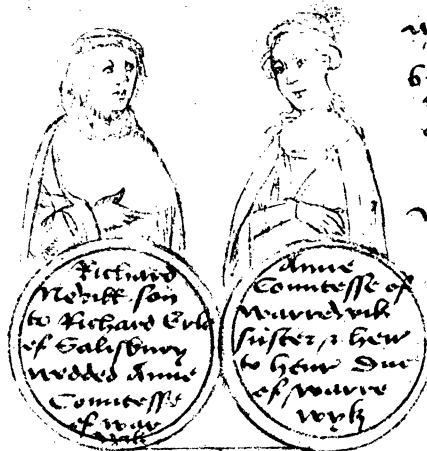 Richard
Nevill son
to Richard Erle
of Salisbury
wedded Anne
Comtesse
of war
wik
Anne
Comtesse of
warrewik
suster & heir
to henr Duc
of warre
wyk